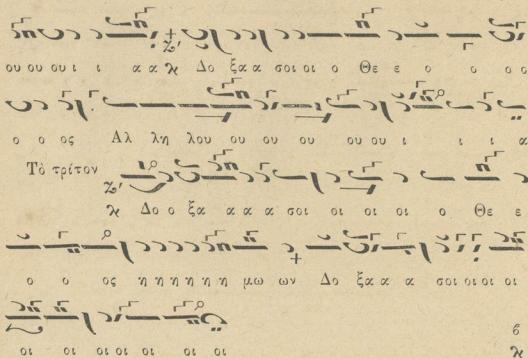 ου ου ου ι ι α α ϡ Δο ξα α σοι οι ο Θε ε ο ο ο ο
ο ο ος Αλ λη λου ου ου ου ου ου ι ι ι α
Τὸ τρίτον
Δο ο ξα α α α σοι οι οι οι ο Θε ε
ο ο ος η η η η η η μω ων Δο ξα α α σοι οι οι οι
οι οι οι οι οι οι οι